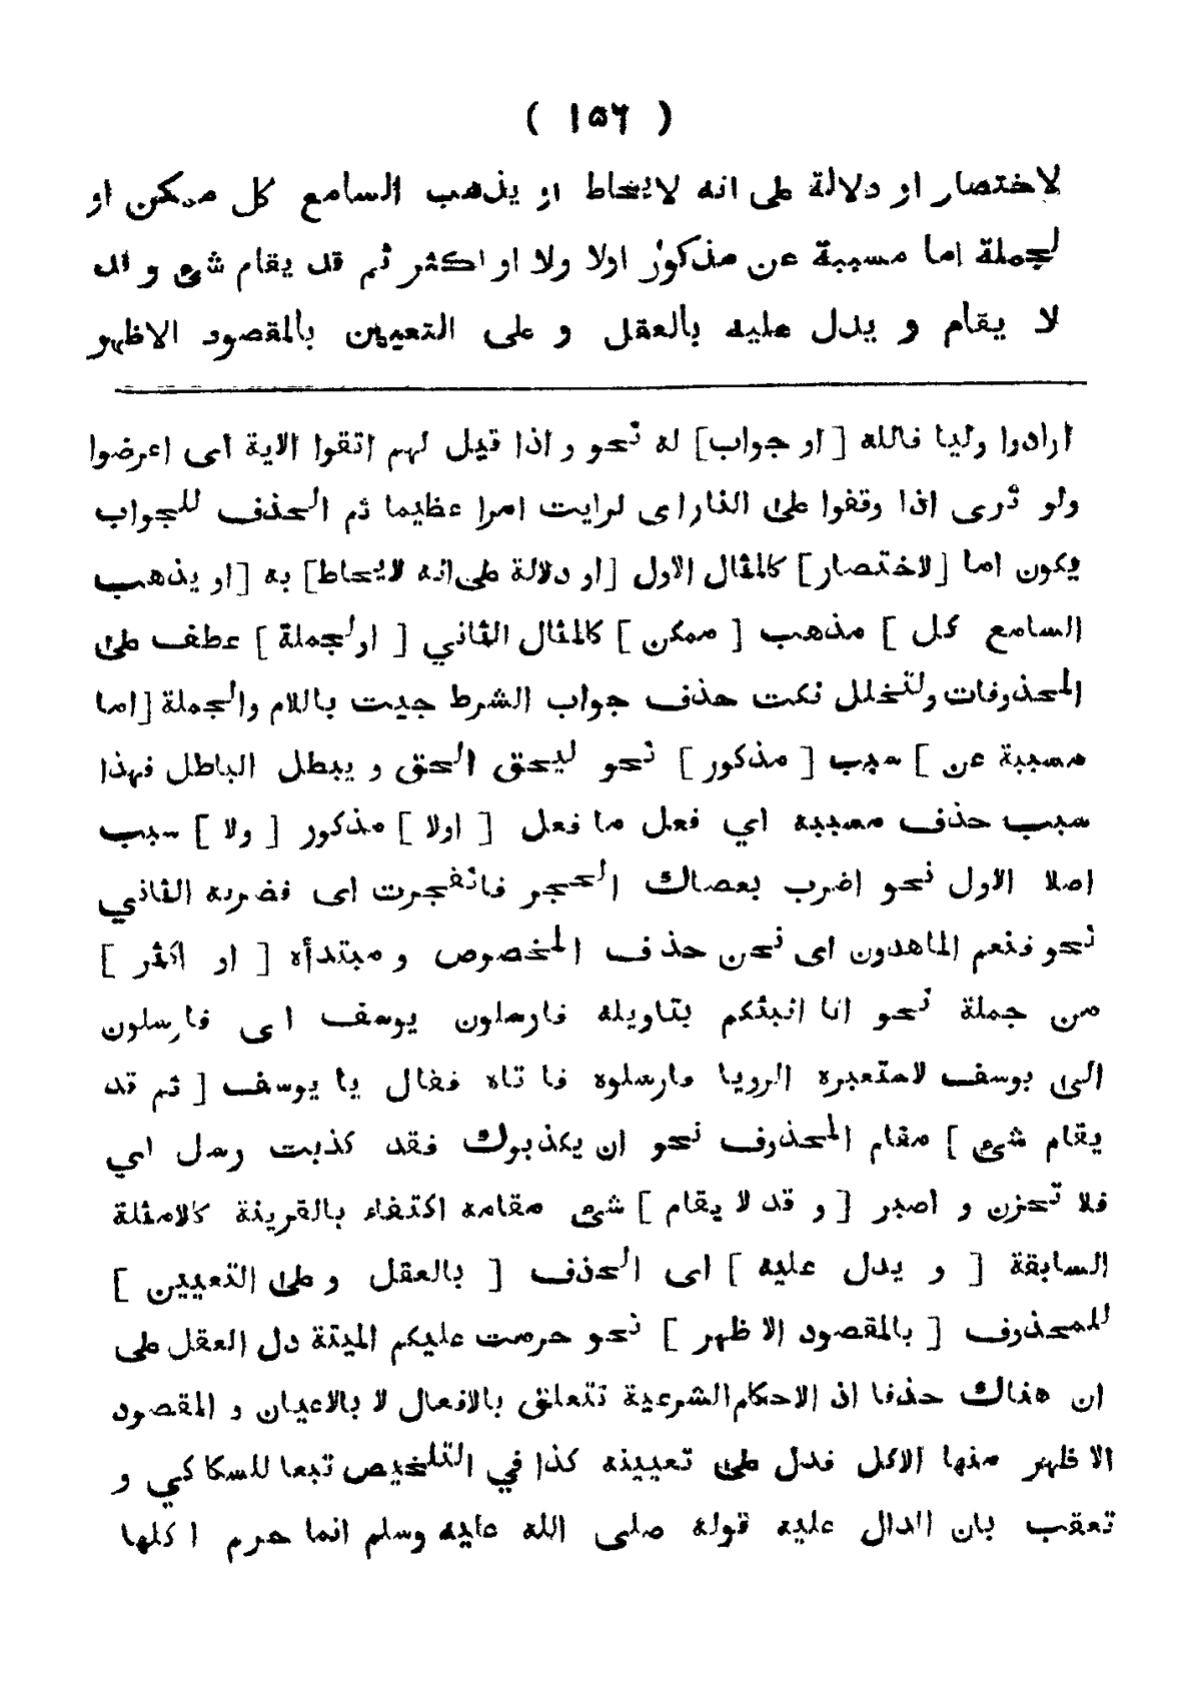 ( ١٥٦ )
لاختصار او دلالة على انه لايحاط او يذهب السامع كل ممكن او
لجملة اما مسببة عن مذكور اولا ولا او اكثر ثم قد يقام شئ و قد
لا يقام و يدل عليه بالعقل و على التعيين بالمقصود الاظهر
ارادوا وليا فالله [ او جواب] له نحو و اذا قيل لهم اتقوا الاية اى اعرضوا
ولو ترى اذا وقفوا على النار اى لرايت امرا عظيما ثم الحذف للجواب
يكون اما [لاختصار] كالمثال الاول [او دلالة على انه لايحاط] به [او يذهب
السامع كل ] مذهب [ ممكن ] كالمثال الثاني [ اولجملة ] عطف على
المحذوفات ولتخلل نكت حذف جواب الشرط جيت باللام والجملة [اما
مسببة عن ] سبب [ مذكور ] نحو ليحق الحق و يبطل الباطل فهذا
سبب حذف مسببه اي فعل ما فعل [ اولا ] مذكور [ ولا ] سبب
اصلا الاول نحو اضرب بعصاك الحجر فانفجرت اى فضربه الثاني
نحو فنعم الماهدون اى نحن حذف المخصوص و مبتدأه [ او اكثر ]
من جملة نحو انا انبئكم بتاويله فارسلون يوسف اى فارسلون
الى يوسف لاستعبره الرويا فارسلوه فا تاه فقال يا يوسف [ ثم قد
يقام شئ ] مقام المحذوف نحو ان يكذبوك فقد كذبت رسل اي
فلا تحزن و اصبر [ و قد لا يقام ] شئ مقامه اكتفاء بالقرينة كالامثلة
السابقة [ و يدل عليه ] اى الحذف [ بالعقل و على التعيين ]
للمحذوف [ بالمقصود الاظهر ] نحو حرمت عليكم الميتة دل العقل على
ان هناك حذفا اذ الاحكام الشرعية تتعلق بالافعال لا بالاعيان و المقصود
الاظهر منها الاكل فدل على تعيينه كذا في التلخيص تبعا للسكاكي و
تعقب بان الدال عليه قوله صلى الله عليه وسلم انما حرم اكلها